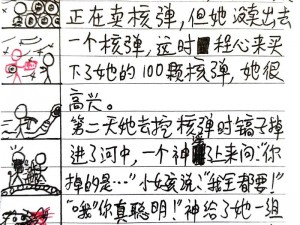 正在卖核弹，但她没卖出去
一个核弹，这时程心来买
下了她的100颗核弹，她很
高兴。
第二天她去挖核弹时镐子掉
进了河中，一个神出来问："你
掉的是…"小女孩说："我全都要！"
"哦你真聪明！"神给了她一组